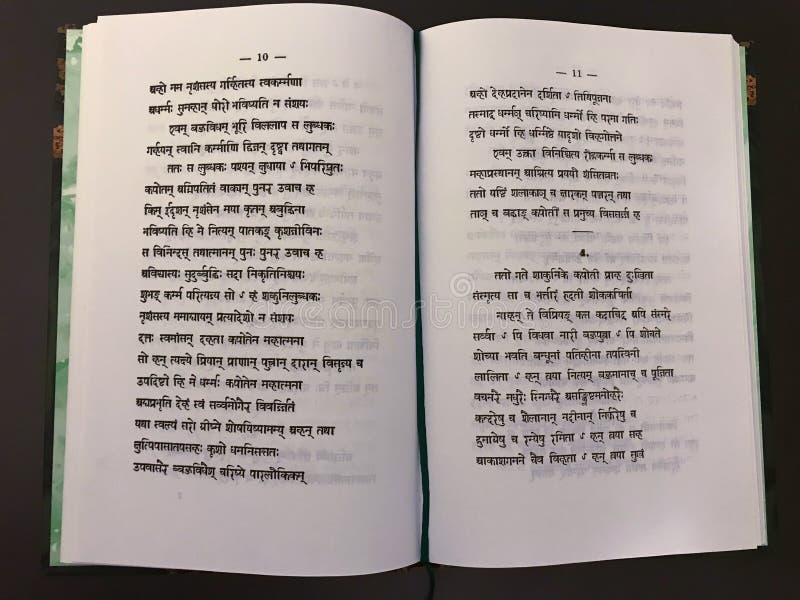 — 10 —
अहो मम नृशंसस्य गर्हितस्य स्वकर्म्मणा
अधर्म्मः सुमहान् घोरो भविष्यति न संशयः
एवम् बहुविधम् भूरि विललाप स लुब्धकः
गर्हयन् स्वानि कर्म्माणि द्विजम् दृष्ट्वा तथागतम्
ततः स लुब्धकः पश्यन् क्षुधया ऽ भिपरिप्लुतः
कपोतम् अग्निपतितं वाक्यम् पुनर् उवाच ह
किम् ईदृशम् नृशंसेन मया कृतम् अबुद्धिना
भविष्यति हि मे नित्यम् पातकङ् कृतजीविनः
स विनिन्दंस् तथात्मानम् पुनः पुनर् उवाच ह
अविश्वास्यः सुदुर्बुद्धिः सदा निकृतिनिश्चयः
शुभङ् कर्म्म परित्यज्य सो ऽ हं शकुनिलुब्धकः
नृशंसस्य ममाद्यायम् प्रत्यादेशो न संशयः
दत्तः स्वमांसम् दहता कपोतेन महात्मना
सो हम् त्यक्ष्ये प्रियान् प्राणान् पुत्रान् दारान् विसृज्य च
उपदिष्टो हि मे धर्म्मः कपोतेन महात्मना
अद्यप्रभृति देहं स्वं सर्व्वभोगैर् विवर्ज्जितं
यथा स्वल्पं सरो ग्रीष्मे शोषयिष्याम्य् अहम् तथा
क्षुत्पिपासातपसहः कृशो धमनिसन्ततः
उपवासैर् बहुविधैश् चरिष्ये पारलौकिकम्
— 11 —
अहो देहप्रदानेन दर्शिता ऽ तिथिपूजना
तस्माद् धर्म्मञ् चरिष्यामि धर्म्मो हि परमा गतिः
दृष्टो धर्म्मो हि धर्म्मिष्ठे यादृशो विहगोत्तमे
एवम् उक्त्वा विनिश्चित्य रौद्रकर्म्मा स लुब्धकः
महाप्रस्थानम् आश्रित्य प्रययौ शंसितव्रतः
ततो यष्टिं शलाकाञ् च क्षारकम् पञ्जरम् तथा
ताञ् च बद्धाङ् कपोतीं स प्रमुच्य विससर्ज्ज ह
४.
ततो गते शाकुनिके कपोती प्राह दुःखिता
संस्मृत्य सा च भर्त्तारं रुदती शोककर्षिता
नाहन् ते विप्रियङ् कान्त कदाचिद् अपि संस्मरे
सर्व्वा ऽ पि विधवा नारी बहुपुत्रा ऽ पि शोचते
शोच्या भवति बन्धूनां पतिहीना तपस्विनी
लालिता ऽ हन् त्वया नित्यम् बहुमानाच् च पूजिता
वचनैर् मधुरैः स्निग्धैर् असङ्क्लिष्टमनोहरैः
कन्दरेषु च शैलानान् नदीनान् निर्झरेषु च
द्रुमाग्रेषु च रम्येषु रमिता ऽ हन् त्वया सह
आकाशगमने चैव विहृता ऽ हन् त्वया सुखं
dreamstime